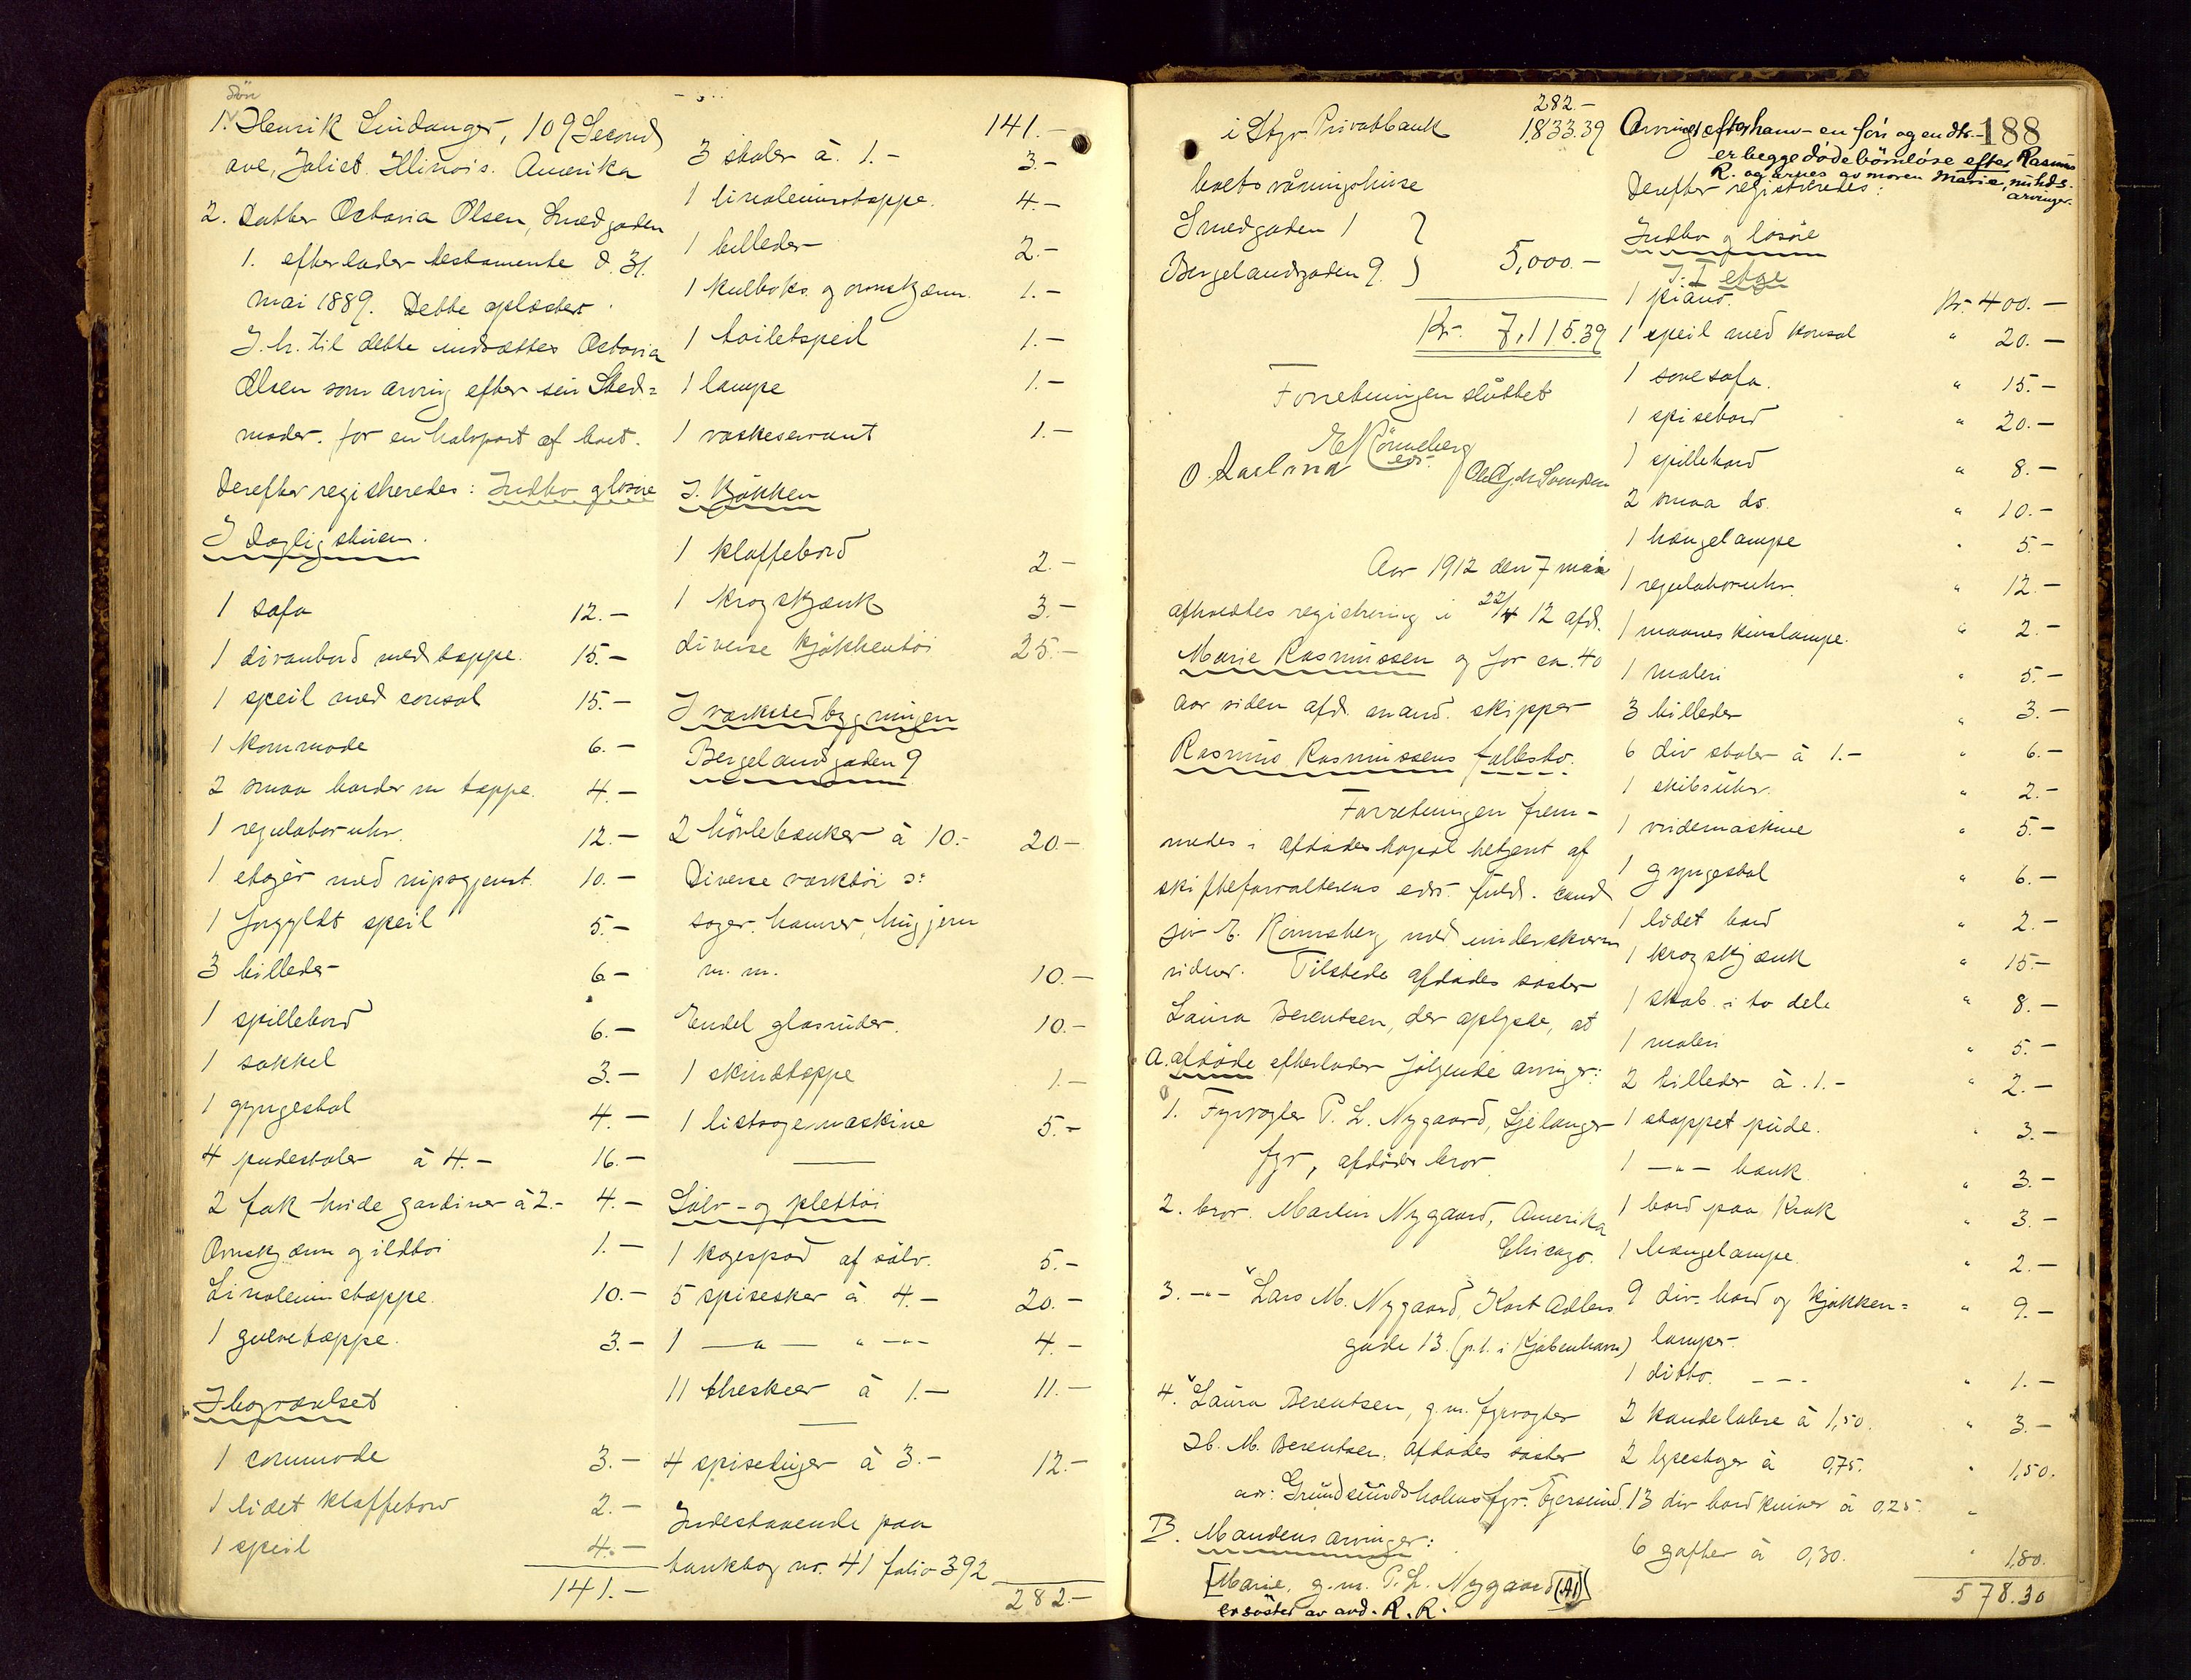 Søn
1. Henrik Lindanger, 109 Second
ave, Joliet. Illinois. Amerika
2. Datter Octavia Olsen, Smedgaden
1. efterlader testamente d. 31.
mai 1889. Dette oplæstes.
I. h. til dette indsættes Octavia
Olsen som arving efter sin Sted=
moder. for en halvpart af boet.
Derefter registreredes: Indbo & løsøre
I Dagligstuen.
1 sofa 12.-
1 divanbord med tæppe. 15.-
1 speil med consol 15.-
1 kommode 6.-
2 smaa border m tæppe. 4.-
1 regulatoruhr. 12.-
1 etagér med nipsgjenst. 10.-
1 forgyldt speil 5.-
3 billeder 6-
1 spillebord 6.-
1 sokkel 3.-
1 gyngestol 4.-
4 pudestoler à 4.- 16.-
2 fak hvide gardiner à 2.- 4.-
Ovnskjærm og ildtøi 1.-
Linoleumstæppe. 10.-
1 gulvetæppe. 3.-
I bagværelset
1 commode 3.-
1 lidet klaffebord 2.-
1 speil 4.-
141.-
141.-
3 stoler à. 1.- 3.-
1 linoleumstæppe. 4.-
1 billeder 2.-
1 kulboks og ovnskjærm. 1.-
1 toiletspeil 1.-
1 lampe 1.-
1 vaskeservant 1.-
I. Køkken
1 klaffebord 2.-
1 krogskjænk 3.-
diverse kjøkkentøi 25.-
I værkstedbygningen
Bergelandsgaden 9
2 høvlebænker à 10.- 20.-
Diverse værktøi s:
sager. hamrer, hugjern
m. m. 10.-
Endel glasruder. 10.-
1 skindtæppe 1.-
1 listsagemaskine 5.-
Sølv- og plettøi
1 kagespad af sølv. 5.-
5 spiseskeer à 4.- 20.-
1 -"- " -"- 4.-
11 theskeer à 1.- 11.-
4 spiseduger à 3.- 12.-
Indestaaende paa
bankbog no. 41 folio 392
282.-
282.-
i Stgr Privatbank 1,833.39
boets vaaningshuse
Smedgaden 1
Bergelandsgaden 9. } 5,000.-
Kr. 7,115.39
Forretningen sluttet
E Rönneberg
eds.
O. Aasland
Aar 1912 den 7 mai
afholdtes registrering i 22/4 12 afd.
Marie Rasmussen og for ca. 40
aar siden afd. mand. skipper
Rasmus Rasmussens fællesbo.
Forretningen frem-
medes i afdødes bopæl betjent af
skifteforvalterens eds. fuldm. cand
jur E. Rönneberg med underskrevne
vidner. Tilstede afdødes søster
Laura Berentsen, der oplyste, at
A. afdøde efterlader følgende arvinger:
1. Fyrvogter P. L. Nygaard, Gjelanger
fyr, afdødes bror
2. bror. Martin Nygaard, Amerika
Chicago.
3. -"- Lars M. Nygaard, Kort Adlers
gade 13. (p.t. i Kjøbenhavn)
4. Laura Berentsen, g. m. fyrvogter
Ib. M. Berentsen. afdødes søster
adr: Grundsundsholms fyr. Egersund.
B. Mandens arvinger:
[Marie, g. m. P. L. Nygaard (A1)]
er søster av avd. R. R.
188
Arvinger efter ham - en søn og en dtr.
er begge døde børnløse efter Rasmus
R. og arves av moren Marie, nuhds.
arvinger.
Derefter registreredes:
Indbo og løsøre
I. I etge
1 piano. Kr. 400.-
1 speil med konsol " 20.-
1 sovesofa. " 15.-
1 spisebord " 20.-
1 spillebord " 8.-
2 smaa do. " 10.-
1 hængelampe " 5.-
1 regulatoruhr. " 12.-
1 maaneskinslampe. " 2.-
1 maleri " 5.-
3 billeder " 3.-
6 div stoler à 1.- " 6.-
1 skibsuhr. " 2.-
1 vridemaskine " 5.-
1 gyngestol " 6.-
1 lidet bord " 2.-
1 krogskjænk " 15.-
1 skab. i to dele " 8.-
1 maleri " 5.-
2 billeder à .1.- " 2.-
1 stoppet pude. " 3.-
1 -"- bænk " 3.-
1 bord paa krak " 3.-
1 hængelampe. " 2.-
9 div. bord og kjøkken= " 9.-
lamper
1 ditto. --- " 1.-
2 kandelabre à 1,50. " 3.-
2 lysestager à 0,75. " 1,50.
13 div bordkniver à 0,25 "
6 gafler à 0,30. " 1,80.
578.30